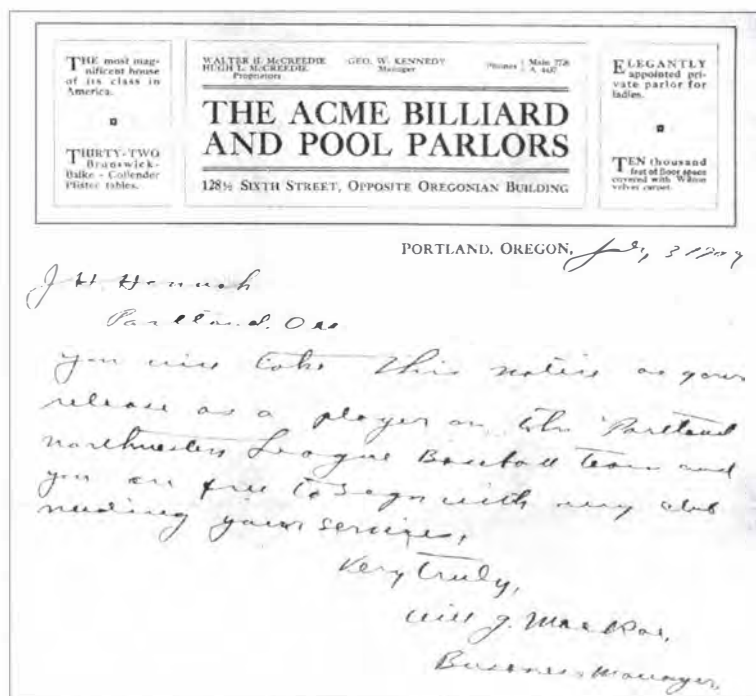 THE most mag-
nificent house
of its class in
America.
THIRTY-TWO
Brunswick-
Balke - Collender
Pfister tables.
WALTER H. McCREEDIE
HUGH L. McCREEDIE
Proprietors
GEO. W. KENNEDY
Manager
Phones
Main
THE ACME BILLIARD
AND POOL PARLORS
128½ SIXTH STREET, OPPOSITE OREGONIAN BUILDING
ELEGANTLY
appointed pri-
vate parlor for
ladies.
TEN thousand
feet of floor space
covered with Wilton
velvet carpet.
PORTLAND, OREGON,
J. H. Hannah
Portland. Ore
you will take this notice as your
release as a player on the Portland
northwestern League Baseball team and
you are free to sign with any club
needing your services,
Very truly,
Will J. MacRae,
Business Manager,